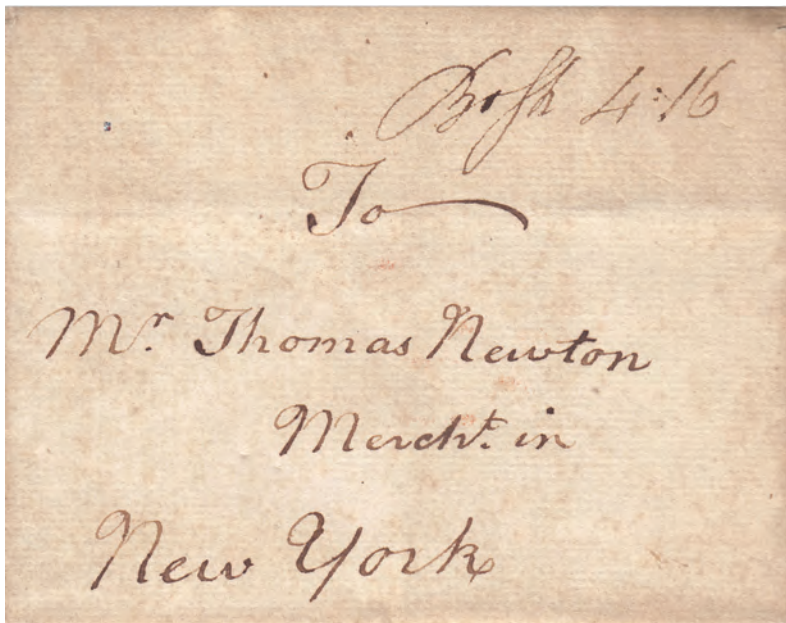 Bost 4:16
To
Mr. Thomas Newton
Mercht. in
New York